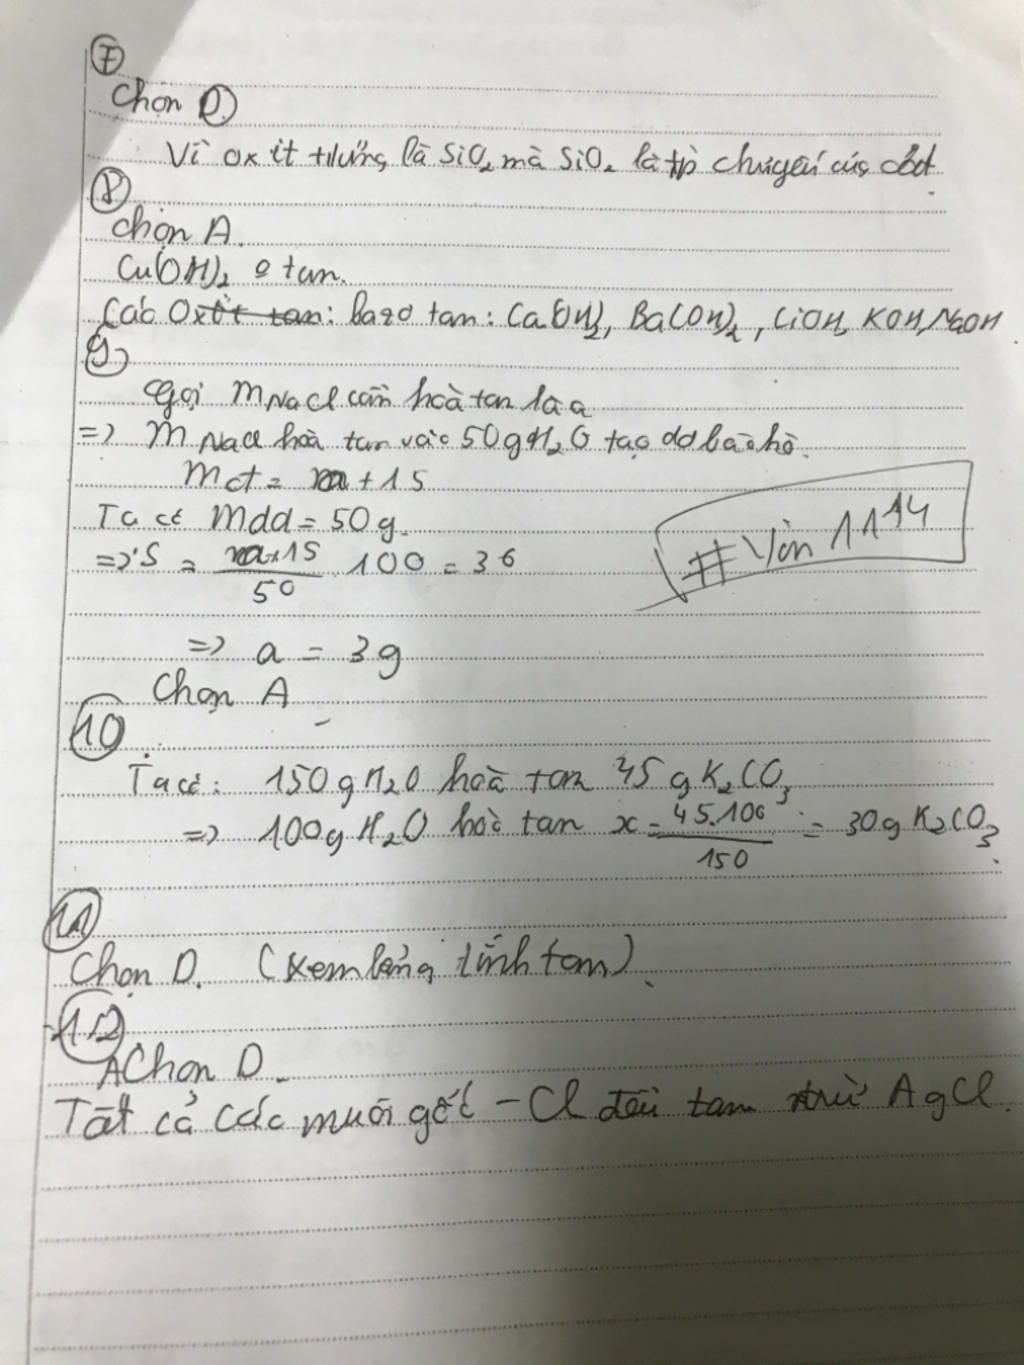 7
Chọn D.
Vì oxit tương là SiO2 mà SiO2 là tp chủ yếu của cát.
8
Chọn A.
Cu(OH)2 o tan.
Các Oxit tan: bazơ tan: Ca(OH)2, Ba(OH)2, LiOH, KOH, NaOH
9
Gọi mNaCl cần hoà tan là a
=> m NaCl hoà tan vào 50g H2O tạo dd bão hò.
mct = a + 15
Ta có mdd = 50g
=> S = a+15/50 . 100 = 36
=> a = 3g
Chọn A
#Yin1114
10
Ta có: 150g H2O hoà tan 45g K2CO3
=> 100g H2O hoà tan x = 45.100/150 = 30g K2CO3.
11
Chọn D. (Xem bảng tính tan)
12
Chọn D.
Tất cả các muối gốc -Cl đều tan trừ AgCl.